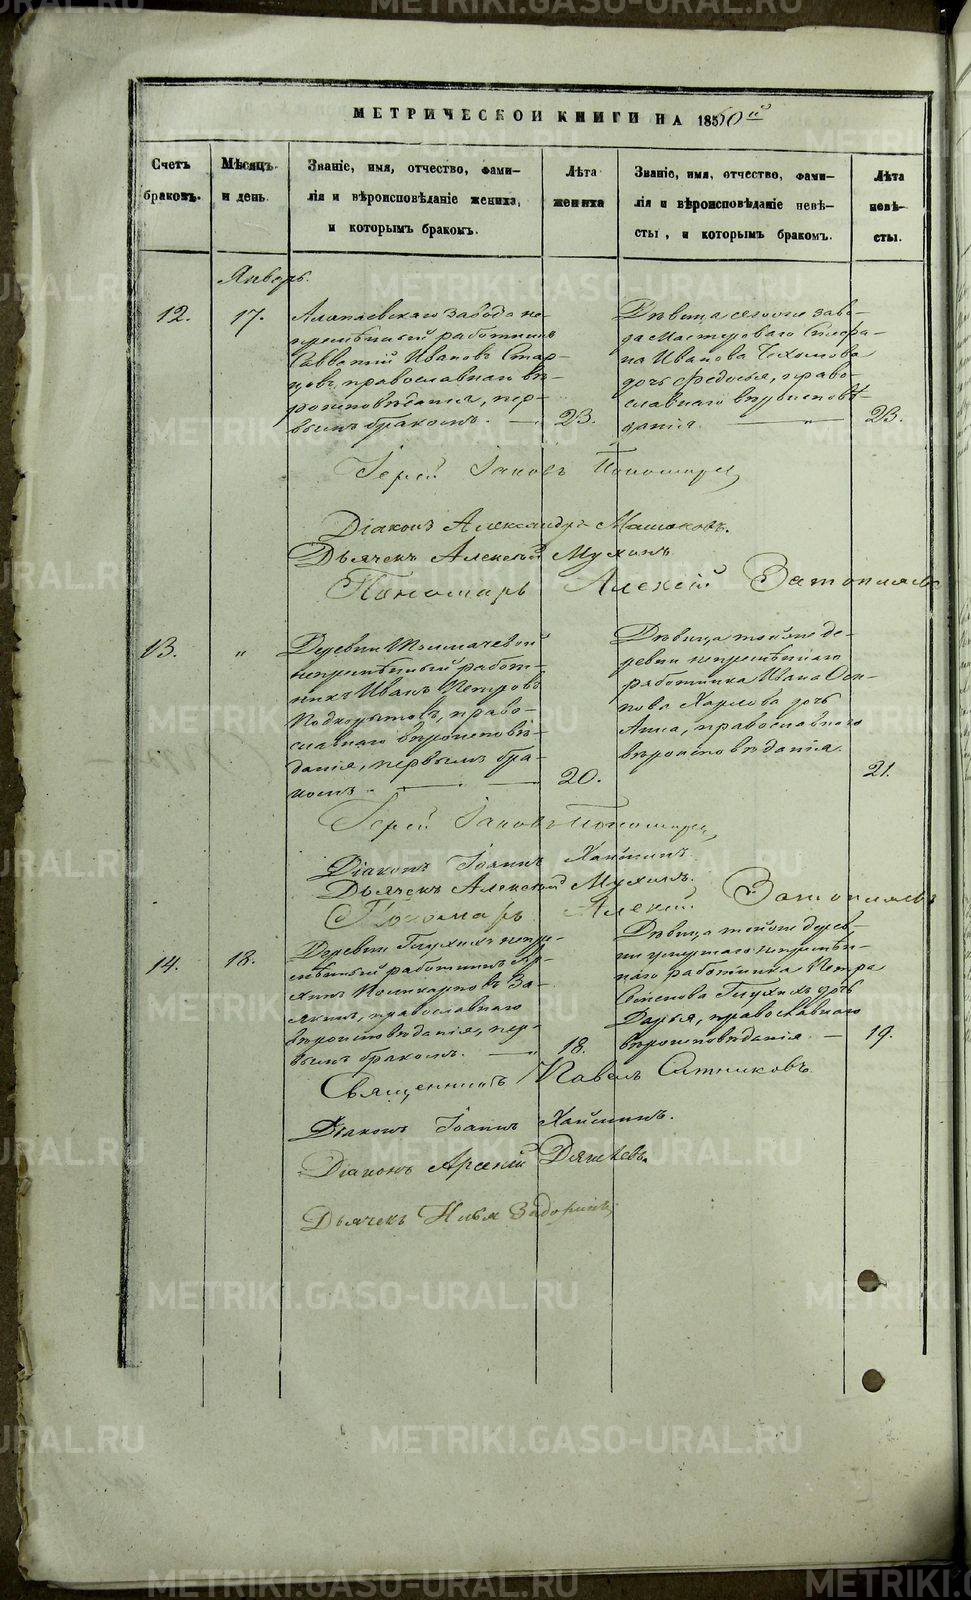 МЕТРИЧЕСКОЙ КНИГИ НА 1860й
Счетъ браковъ.
Мѣсяцъ и день.
Званіе, имя, отчество, фами-
лія и вѣроисповѣданіе жениха,
и которымъ бракомъ.
Лѣта жениха
Званіе, имя, отчество, фами-
лія и вѣроисповѣданіе невѣ-
сты, и которымъ бракомъ.
Лѣта невѣ-
сты.
Январь.
12.
17.
Алапаевскаго завода не-
премѣнный работникъ
Савватій Ивановъ Стар-
цовъ, православнаго вѣ-
роисповѣданія, пер-
вымъ бракомъ.
23.
Дѣвица сегоже заво-
да Мастероваго
на Иванова
дочь Федосья, право-
славнаго вѣроисповѣ-
данія.
23.
Іерей Іаковъ Пономарев
Діаконъ Александръ
Дьячекъ Алексѣй Мухинъ
Пономарь Алексій Затопляевъ
13.
"
Деревни Толмачевой
непремѣнный работ-
никъ Иванъ Петровъ
Подкорытовъ, право-
славнаго вѣроисповѣ-
данія, первымъ бра-
комъ.
20.
Дѣвица тойже де-
ревни непремѣннаго
работника Ивана Оси-
пова Харлова дочь
Анна, православнаго
вѣроисповѣданія.
21.
Іерей Іаковъ Пономарев
Діаконъ Іоаннъ
Дьячекъ Алексѣй Мухинъ.
Пономарь Алексій Затопляевъ
14.
18.
Деревни Глухихъ непре-
мѣнный работникъ
Поликарповъ За-
якинъ, православнаго
вѣроисповѣданія, пер-
вымъ бракомъ.
18.
Дѣвица тойже дерев-
ни умершаго непремѣн-
наго работника Петра
Семенова Глухихъ дочь
Дарья, православнаго
вѣроисповѣданія.
19.
Священникъ Павелъ Ситниковъ
Діаконъ Іоаннъ
Діаконъ Арсеній
Дьячекъ Илья Задоринъ
METRIKI.GASO-URAL.RU